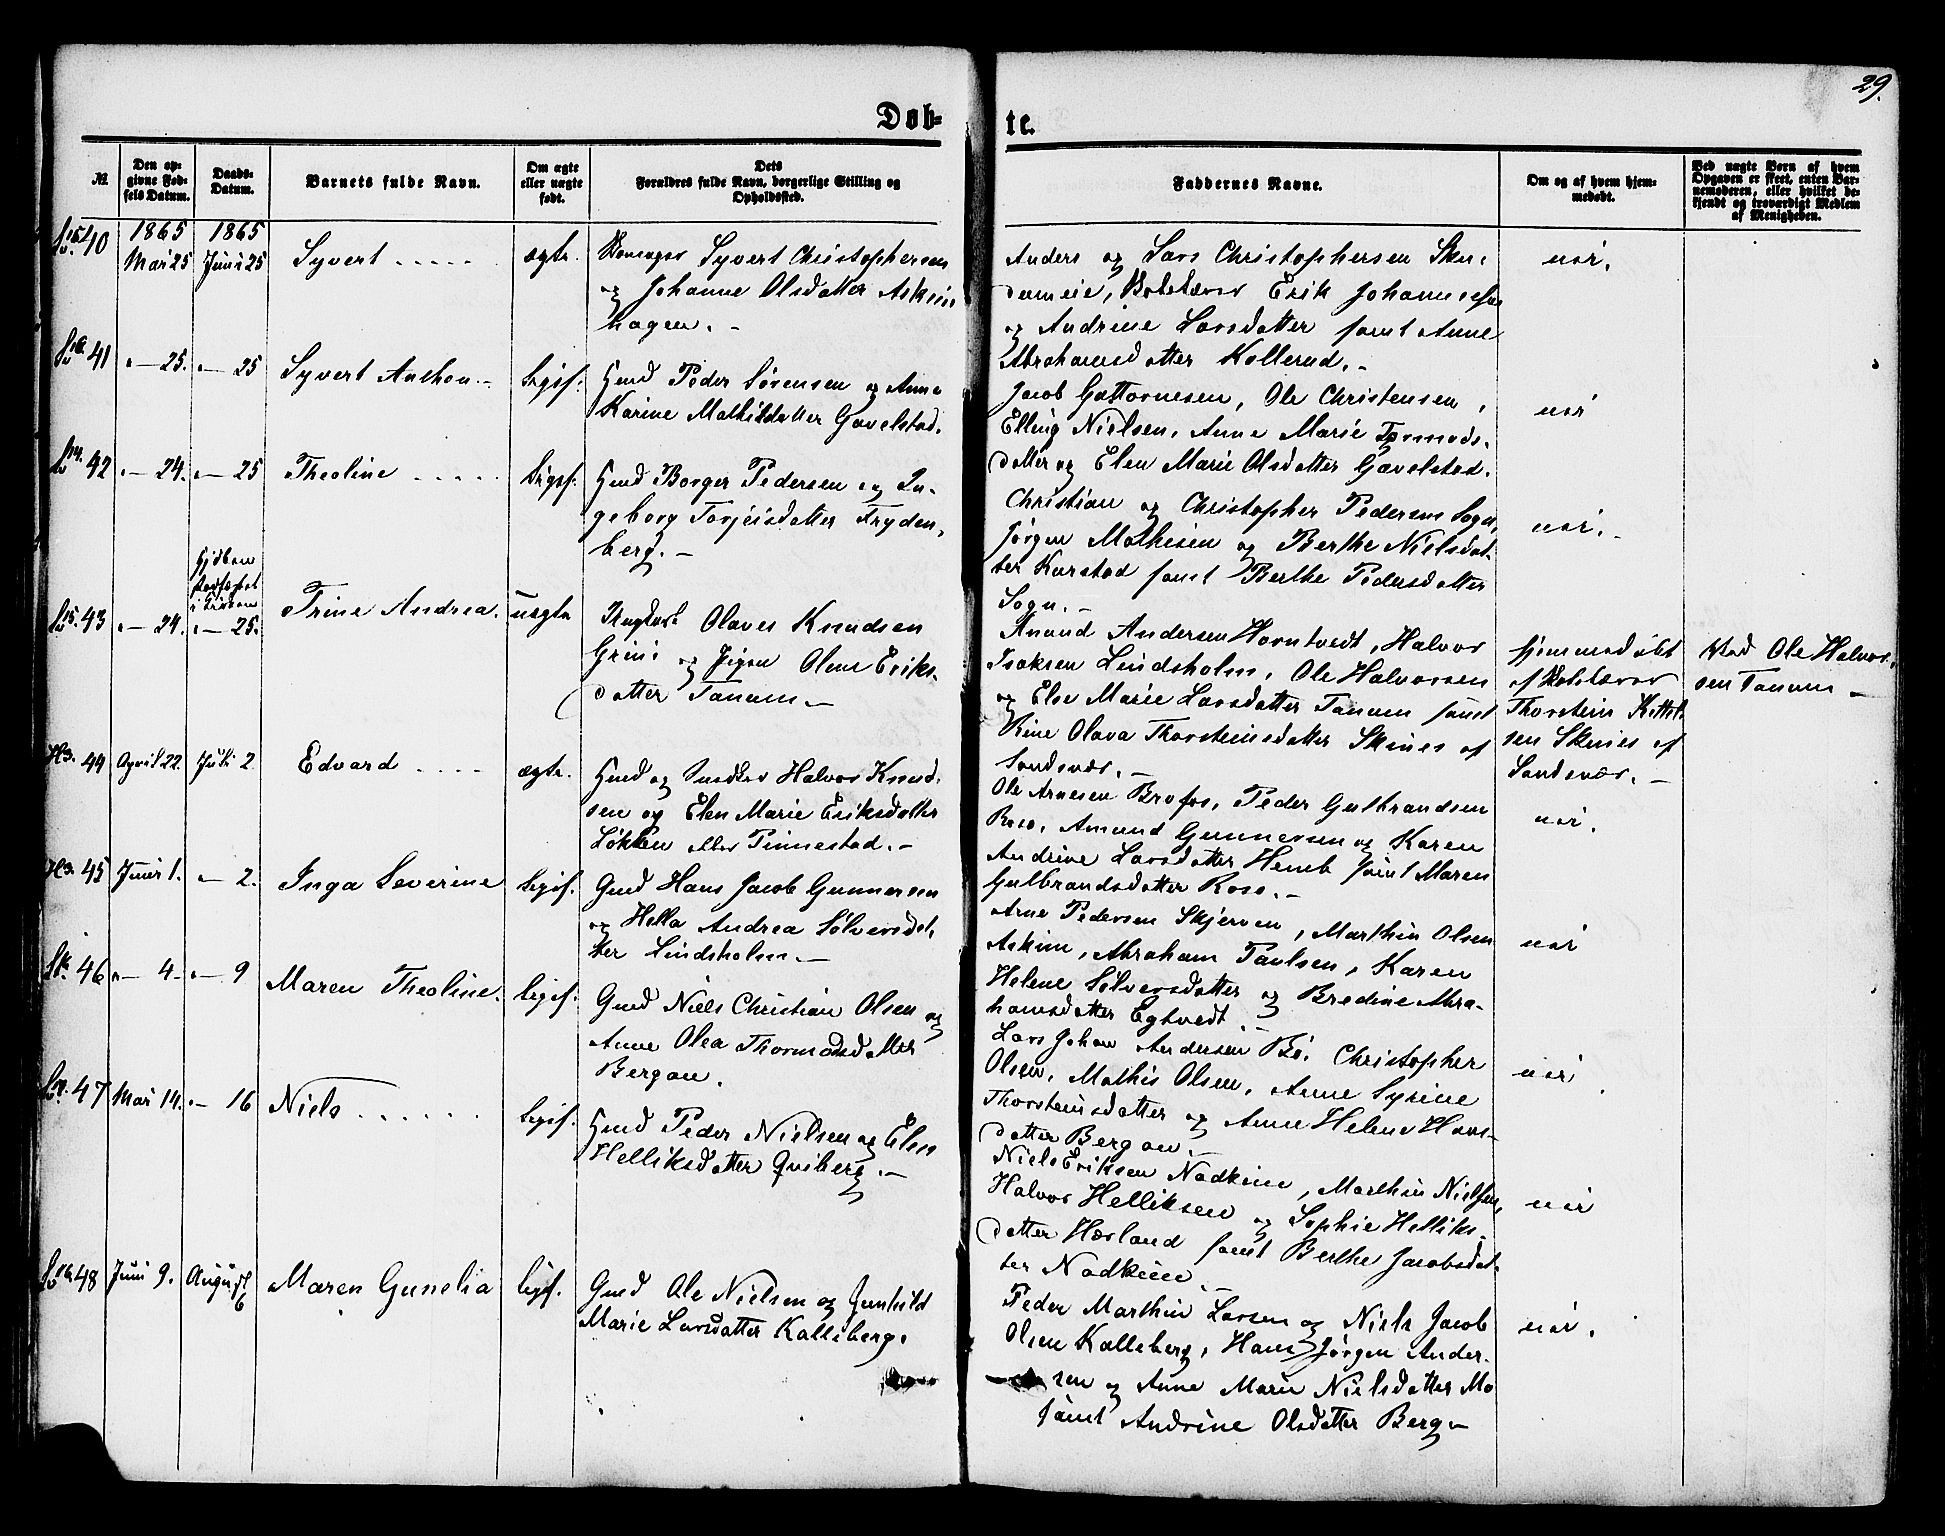 29.
Døb-
te.
№
Den op-
givne Fød-
sels Datum.
Daabs-
Datum.
Barnets fulde Navn.
Om ægte
eller uægte
født.
Dets
Forældres fulde Navn, borgerlige Stilling og
Opholdssted.
Faddernes Navne.
Om og af hvem hjem-
medøbt.
Ved uægte Børn af hvem
Opgaven er skeet, enten Bar-
nemoderen, eller hvilket be-
kjendt og troværdigt Medlem
af Menigheden.
40
1865
Mai 25
1865
Juni 25
Syvert
ægte.
Syvert Christophersen
og Johanne Olsdatter Askim
hagen. -
Anders og Lars Christophersen
Erik Johannesen
og Andrine Larsdatter samt Anne
Abrahamsdatter Kollerud. -
nei.
41
" - 25.
" - 25
Syvert Anthon. -
legif.
Gmd Peder Sørensen og Anne
Karine Mathisdatter Gavelstad.
Jacob Guttormsen, Ole Christensen,
Elling Nielsen, Anne Marie Tormods-
datter og Elen Marie Olsdatter Gavelstad.
nei
42
" - 24.
" - 25
Theoline
legif.
Gmd Borger Pedersen og In-
geborg Torjeisdatter Fryden-
berg. -
Christian og Christopher Pedersen Sogn,
Jørgen Mathisen og Berthe Nielsdat-
ter Karstad samt Berthe Pedersdatter
Sogn. -
nei. -
43
" - 24.
Hjdben
stadfæstet
i Kirken
" - 25.
Trine Andrea.
uægte
Ungkarl Olaves Knudsen
Grini og Pigen Olene Eriks-
datter Tanum -
Anund Andersen Horntvedt, Halvor
Isaksen Lindsholm, Ole Halvorsen
og Else Marie Larsdatter Tanum samt
Rine Olava Thorsteinsdatter Skines af
Sandsvær. -
Hjemmedøbt
af
Thorstein Kittel-
sen Skines af
Sandsvær. -
Ole Halvor-
sen Tanum -
44
April 22.
Juli 2
Edvard
ægte.
Gmd og Halvor Knud-
sen og Elen Marie Eriksdatter
Løkken eller Tinnestad. -
Ole Arnesen Brofos, Peder Gulbrandsen
Roso, Amund Gunnersen og Karen
Andrine Larsdatter Hemb samt Maren
Gulbrandsdatter Roso. -
nei.
45
Juni 1.
" - 2.
Inga Severine
legif.
Gmd Hans Jacob Gunnersen
og Hella Andrea Sølversdat-
ter Lindsholm -
Arne Pedersen Skjerven, Marthin Olsen
Askim, Abraham Paulsen, Karen
Helene Sølversdatter og Bredine Abra-
hamsdatter Egtvedt. -
nei
46
" - 4 -
" - 9
Maren Theoline.
legif.
Gmd Niels Christian Olsen og
Anne Olea Thormodsdatter
Bergan.
Lars Johan Andersen Bø, Christopher
Olsen, Mathis Olsen, Anne Syrine
Thorsteinsdatter og Anne Helene Hans-
datter Bergan. -
nei
47
Mai 14.
" - 16
Niels
legif.
Gmd Peder Nielsen og Elen
Helliksdatter Qviberg. -
Niels Eriksen Nadkine, Marthin Nielsen,
Halvor Helliksen og Sophie Helliks-
datter Hørland samt Berthe Jacobsdat-
ter Nadkine. -
nei
48
Juni 9.
August
6
Maren Gunelia
legif.
Gmd Ole Nielsen og Gunhild
Marie Larsdatter Kalleberg.
Peder Marthin Larsen og Niels Jacob
Olsen Kalleberg, Hans Jørgen Ander-
sen og Anne Marie Nielsdatter Mo
samt Andrine Olsdatter Berg -
nei.